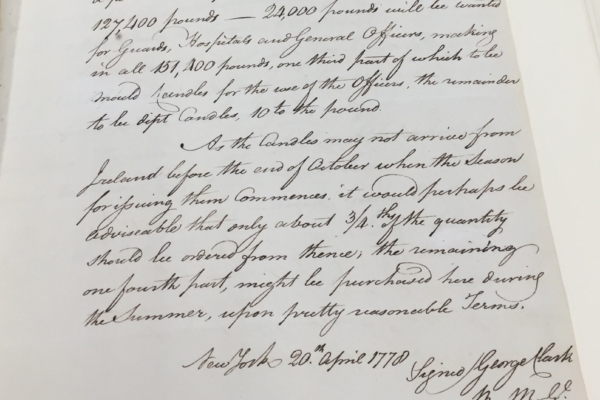 127,400 pounds — 24,000 pounds will be wanted
for Guards, Hospitals and General Officers, making
in all 151,400 pounds, one third part of which to be
mould Candles for the use of the Officers, the remainder
to be dipt Candles, 10 to the pound.
As the Candles may not arrive from
Ireland before the end of October when the Season
for issuing them Commences it would perhaps be
adviseable that only about 3/4.ths of the quantity
should be ordered from thence; the remaining
one fourth part, might be purchased here during
the Summer, upon pretty reasonable Terms.
New York 20.th April 1778
Signed George Clark